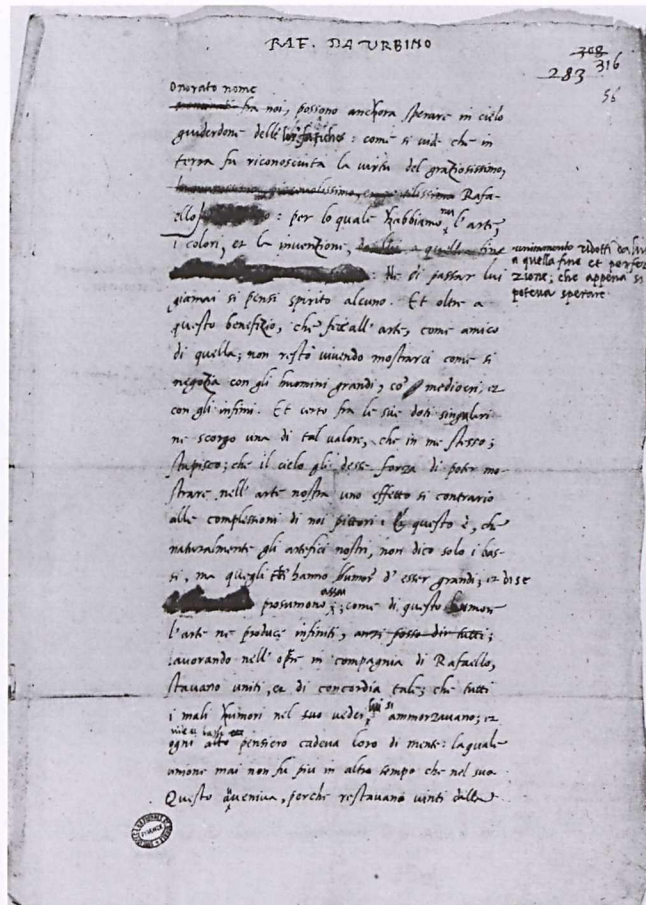 RAF. DA URBINO
308
283 316
56
Onorato nome
fra noi, possono anchora sperare in cielo
guiderdone delle lor fatiche: come si vide che in
terra fu riconosciuta la virtù del graziosissimo,
Rafa-
ello : per lo quale habbiamo noi l'arte,
i colori, et la invenzione, da lui a quella fine unitamente ridotti da lui
a quella fine et perfez-
: Ne di passar lui zione; che appena si
giamai si pensi spirito alcuno. Et oltre a poteva sperare
questo benefizio, che fece all'arte, come amico
di quella; non restò vivendo mostrarci come si
negozia con gli huomini grandi, co' mediocri, et
con gli infimi. Et certo fra le sue doti singulari
ne scorgo una di tal valore, che in me stesso;
stupisco; che il cielo gli desse forza di poter mo-
strare nell'arte nostra uno effetto si contrario
alle complessioni di noi pittori: questo è, che
naturalmente gli artefici nostri, non dico solo i bas-
si, ma quegli che hanno humor d'esser grandi; et di se
presumono assai; come di questo humore
l'arte ne produce infiniti, anzi posso dir tutti;
lavorando nell'opre in compagnia di Rafaello,
stavano uniti, et di concordia tale; che tutti
i mali humori nel suo veder, lui si ammorzavano; et
vile et basso
ogni pensiero cadeva loro di mente: laquale
unione mai non fu piu in altro tempo che nel suo
Questo aveniva, perche restavano vinti dalla
FIRENZE